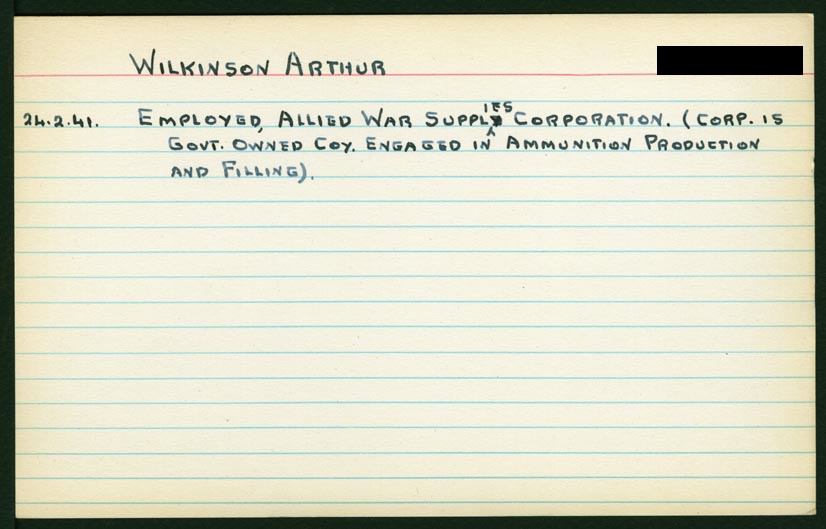 WILKINSON ARTHUR
24.2.41. EMPLOYED, ALLIED WAR SUPPLIES CORPORATION. (CORP. IS
GOVT. OWNED COY. ENGAGED IN AMMUNITION PRODUCTION
AND FILLING).